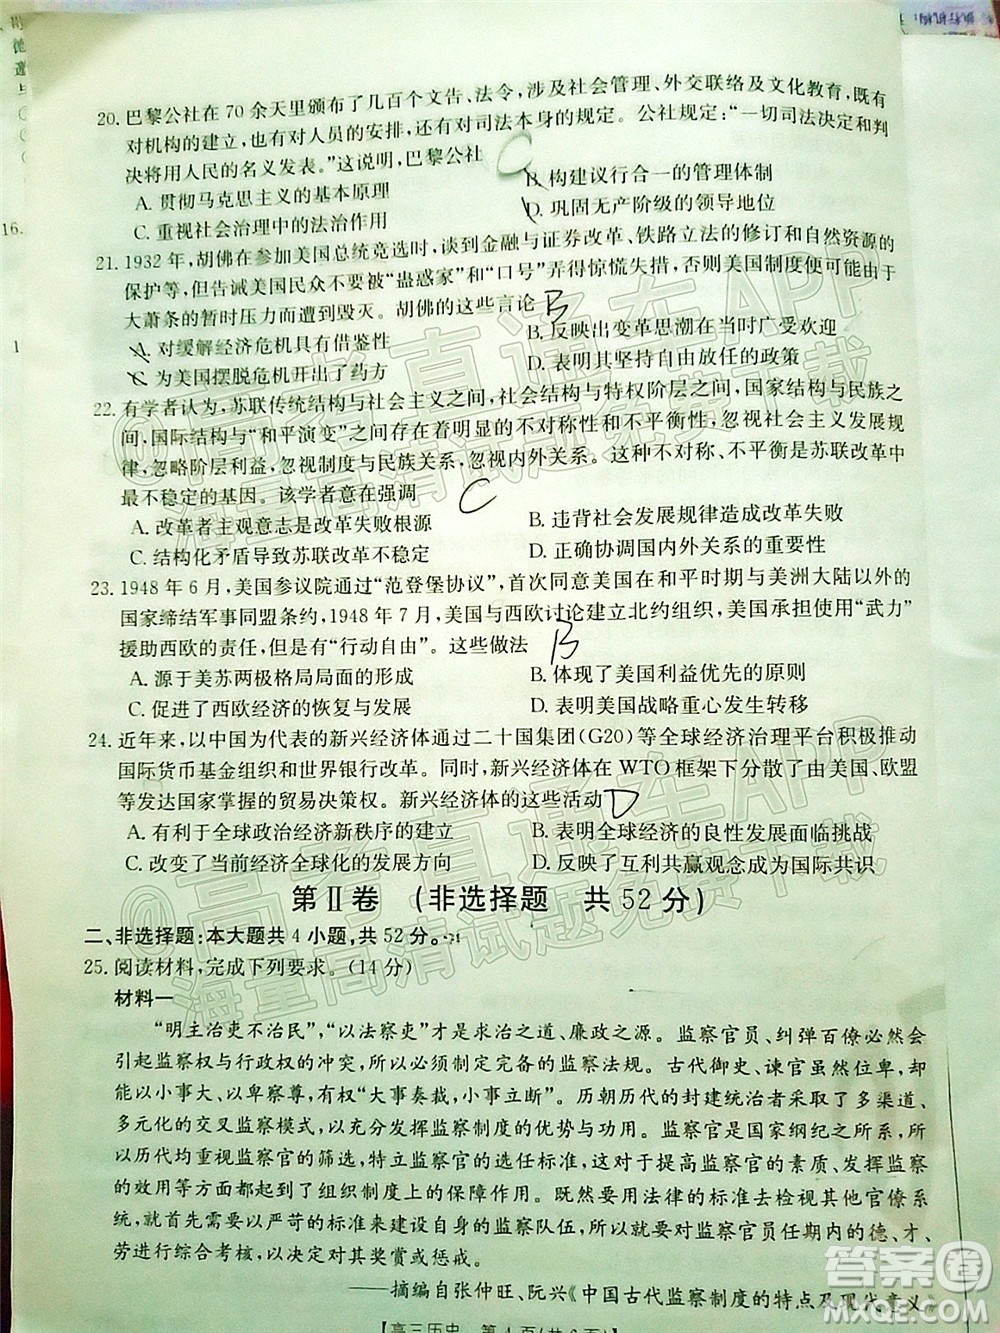 20. 巴黎公社在 70 余天里颁布了几百个文告、法令，涉及社会管理、外交联络及文化教育，既有
对机构的建立，也有对人员的安排，还有对司法本身的规定。公社规定：“一切司法决定和判
决将用人民的名义发表。”这说明，巴黎公社
C
A. 贯彻马克思主义的基本原理
B. 构建议行合一的管理体制
C. 重视社会治理中的法治作用
D. 巩固无产阶级的领导地位
16.
21. 1932 年，胡佛在参加美国总统竞选时，谈到金融与证券改革、铁路立法的修订和自然资源的
保护等，但告诫美国民众不要被“蛊惑家”和“口号”弄得惊慌失措，否则美国制度便可能由于
大萧条的暂时压力而遭到毁灭。胡佛的这些言论
B
A. 对缓解经济危机具有借鉴性
B. 反映出变革思潮在当时广受欢迎
C. 为美国摆脱危机开出了药方
D. 表明其坚持自由放任的政策
1
22. 有学者认为，苏联传统结构与社会主义之间，社会结构与特权阶层之间，国家结构与民族之
间，国际结构与“和平演变”之间存在着明显的不对称性和不平衡性，忽视社会发展客观规
律，忽略阶层利益，忽视制度与民族关系，忽视内外关系。这种不对称、不平衡是苏联改革中
最不稳定的基因。该学者意在强调
C
A. 改革者主观意志是改革失败根源
B. 违背社会发展规律造成改革失败
C. 结构化矛盾导致苏联改革不稳定
D. 正确协调国内外关系的重要性
23. 1948 年 6 月，美国参议院通过“范登堡协议”，首次同意在和平时期与美洲大陆以外的
国家缔结军事同盟条约，1948 年 7 月，美国与西欧讨论建立北约组织，美国承担使用“武力”
援助西欧的责任，但有“行动自由”。这些做法
B
A. 源于美苏两极格局局面的形成
B. 体现了美国利益优先的原则
C. 促进了西欧经济的恢复与发展
D. 表明美国战略重心发生转移
24. 近年来，以中国为代表的新兴经济体通过二十国集团(G20)等全球经济治理平台积极推动
国际货币基金组织和世界银行改革。同时，新兴经济体在 WTO 框架下分散了由美国、欧盟
等发达国家掌握的贸易决策权。新兴经济体的这些活动
D
A. 有利于全球政治经济新秩序的建立
B. 表明全球经济的良性发展面临挑战
C. 改变了当前经济全球化的发展方向
D. 反映了互利共赢观念成为国际共识
第Ⅱ卷 (非选择题 共 52 分)
二、非选择题：本大题共 4 小题，共 52 分。
25. 阅读材料，完成下列要求。(14 分)
材料一
“明主治吏不治民”，“以法察吏”才是求治之道、廉政之源。监察官员、纠弹百僚必然会
引起监察权与行政权的冲突，所以必须制定完备的监察法规。古代御史、谏官虽然位卑，
但能以小事大、以卑察尊，并拥有“大事奏裁，小事立断”。历朝历代的封建统治者采取了多渠道、
多元化的交叉监察模式，充分发挥监察制度的优势与功用。监察官是国家纲纪之所系，所
以历代均重视监察官的筛选，确立监察官的选任标准，这对于提高监察官的素质、发挥监察
效用等方面都起到了组织制度上的保障作用。既然要用法律的标准去检视其他官僚系
统，就首先需要以严苛的标准建设自身的监察队伍，所以需要对监察官员任期内的德、才、
劳进行综合考核，以决定对其奖赏或惩戒。
——摘编自张仲旺、阮兴《中国古代监察制度的特点及现代意义》
【高三历史 第 4 页(共 6 页)】
@高考直通车APP
海量高清试题免费下载
@高考直通车APP
海量高清试题免费下载
答案圈
MXQE.COM